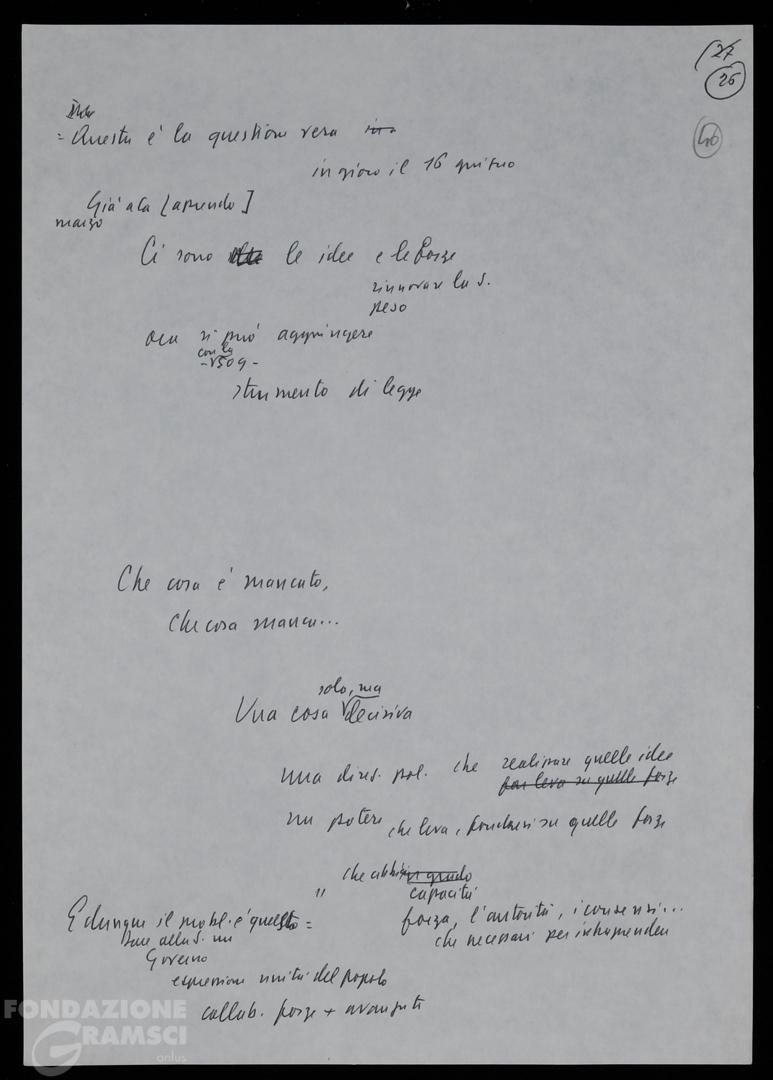 27
26
46
= Questa è la questione vera
in gioco il 16 giugno
Già ala [aprendo]
marzo
Ci sono le idee e le forze
rinnovare la S.
peso
ora si può aggiungere
con la
strumento di legge
Che cosa è mancato,
Che cosa manca...
solo, ma
Una cosa decisiva
una direz. pol. che realizzare quelle idee
far leva su quelle forze
un potere che leva, fondarsi su quelle forze
" che abbia in grado
capacità
E dunque il probl. è questo = forza, l'autorità, i consensi...
Dare alla S. un che necessari per intraprendere
Governo
espressione unità del popolo
collab. forze + avanzate
FONDAZIONE
GRAMSCI
onlus